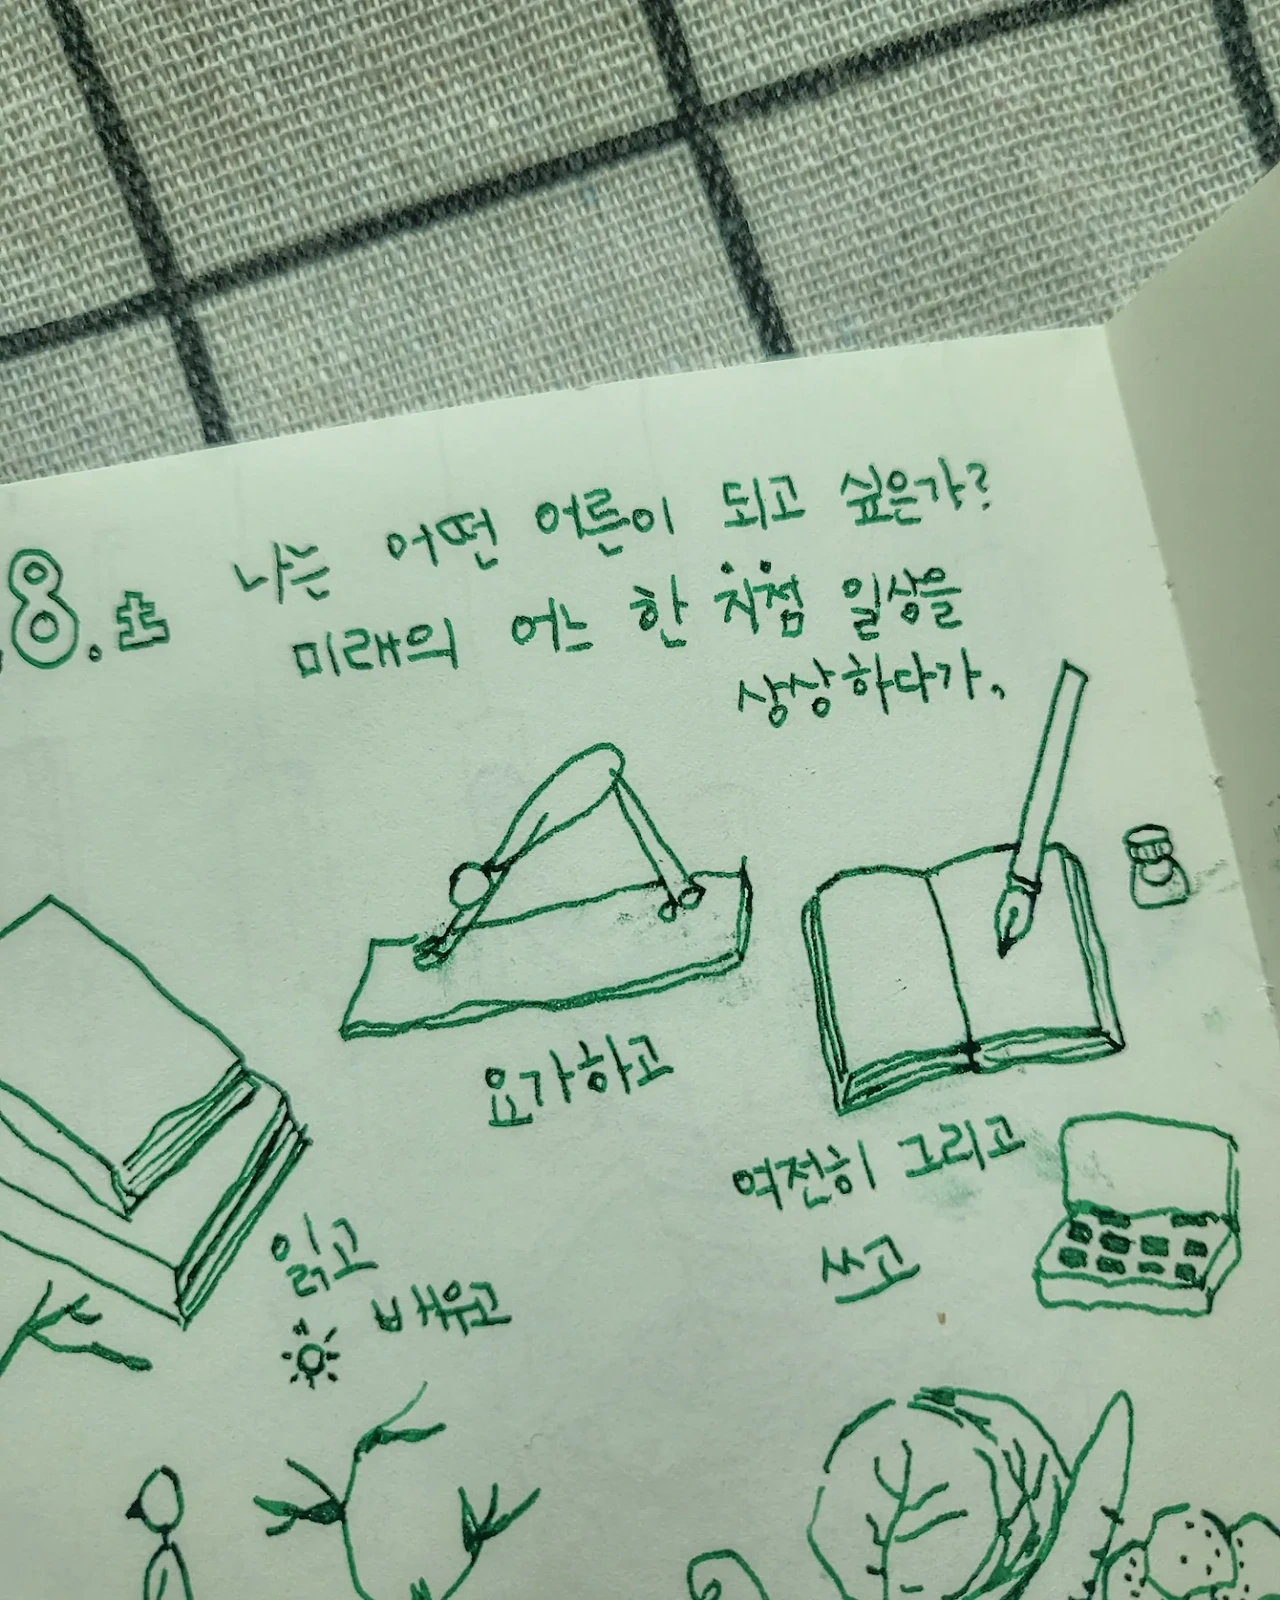 8.토
나는 어떤 어른이 되고 싶은가?
미래의 어느 한 지점 일상을
상상하다가,
요가하고
여전히 그리고
쓰고
읽고
배우고